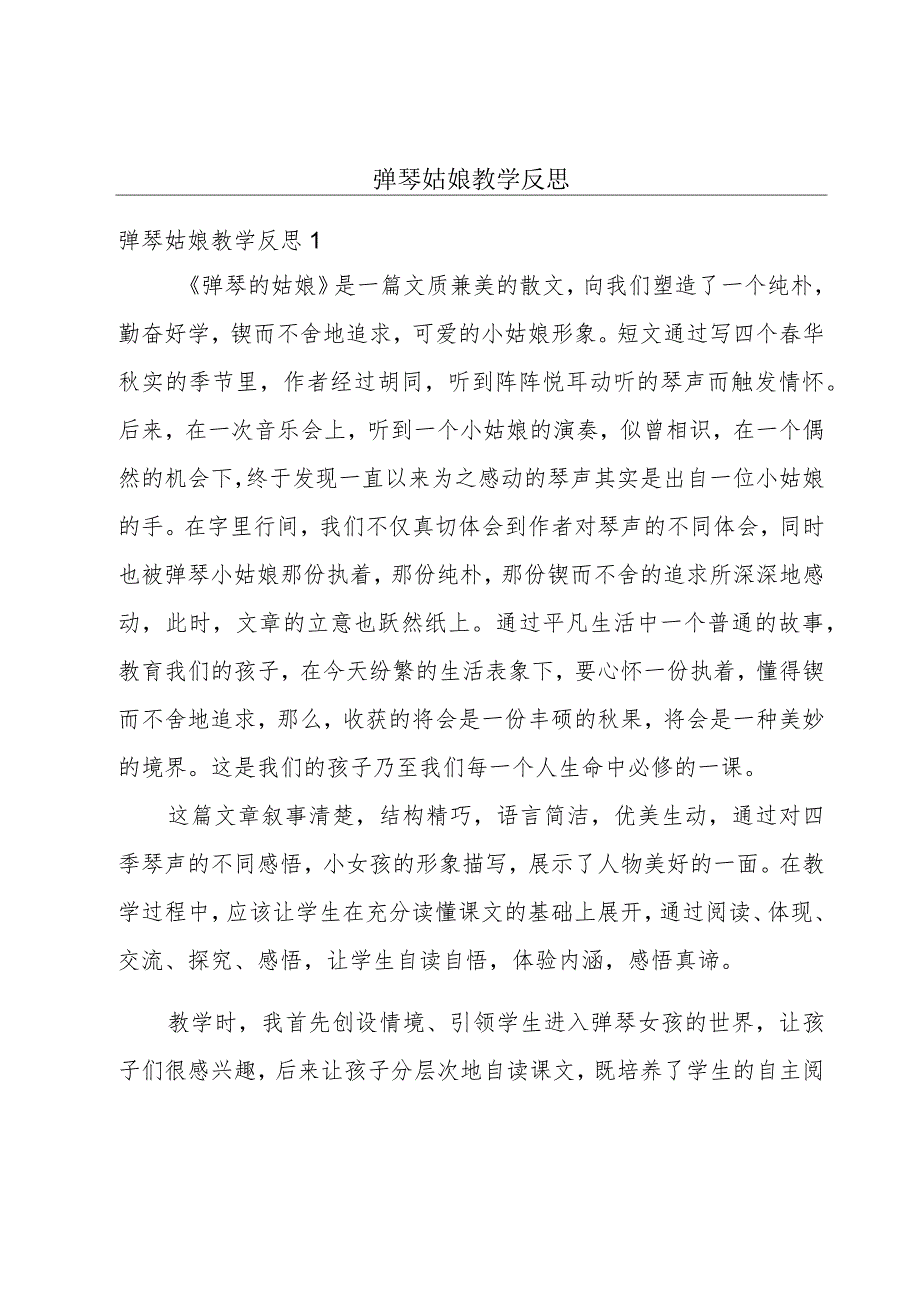 弹琴姑娘教学反思
弹琴姑娘教学反思1
《弹琴的姑娘》是一篇文质兼美的散文，向我们塑造了一个纯朴，
勤奋好学，锲而不舍地追求，可爱的小姑娘形象。短文通过写四个春华
秋实的季节里，作者经过胡同，听到阵阵悦耳动听的琴声而触发情怀。
后来，在一次音乐会上，听到一个小姑娘的演奏，似曾相识，在一个偶
然的机会下，终于发现一直以来为之感动的琴声其实是出自一位小姑娘
的手。在字里行间，我们不仅真切体会到作者对琴声的不同体会，同时
也被弹琴小姑娘那份执着，那份纯朴，那份锲而不舍的追求所深深地感
动，此时，文章的立意也跃然纸上。通过平凡生活中一个普通的故事，
教育我们的孩子，在今天纷繁的生活表象下，要心怀一份执着，懂得锲
而不舍地追求，那么，收获的将会是一份丰硕的秋果，将会是一种美妙
的境界。这是我们的孩子乃至我们每一个人生命中必修的一课。
这篇文章叙事清楚，结构精巧，语言简洁，优美生动，通过对四
季琴声的不同感悟，小女孩的形象描写，展示了人物美好的一面。在教
学过程中，应该让学生在充分读懂课文的基础上展开，通过阅读、体现、
交流、探究、感悟，让学生自读自悟，体验内涵，感悟真谛。
教学时，我首先创设情境、引领学生进入弹琴女孩的世界，让孩
子们很感兴趣，后来让孩子分层次地自读课文，既培养了学生的自主阅